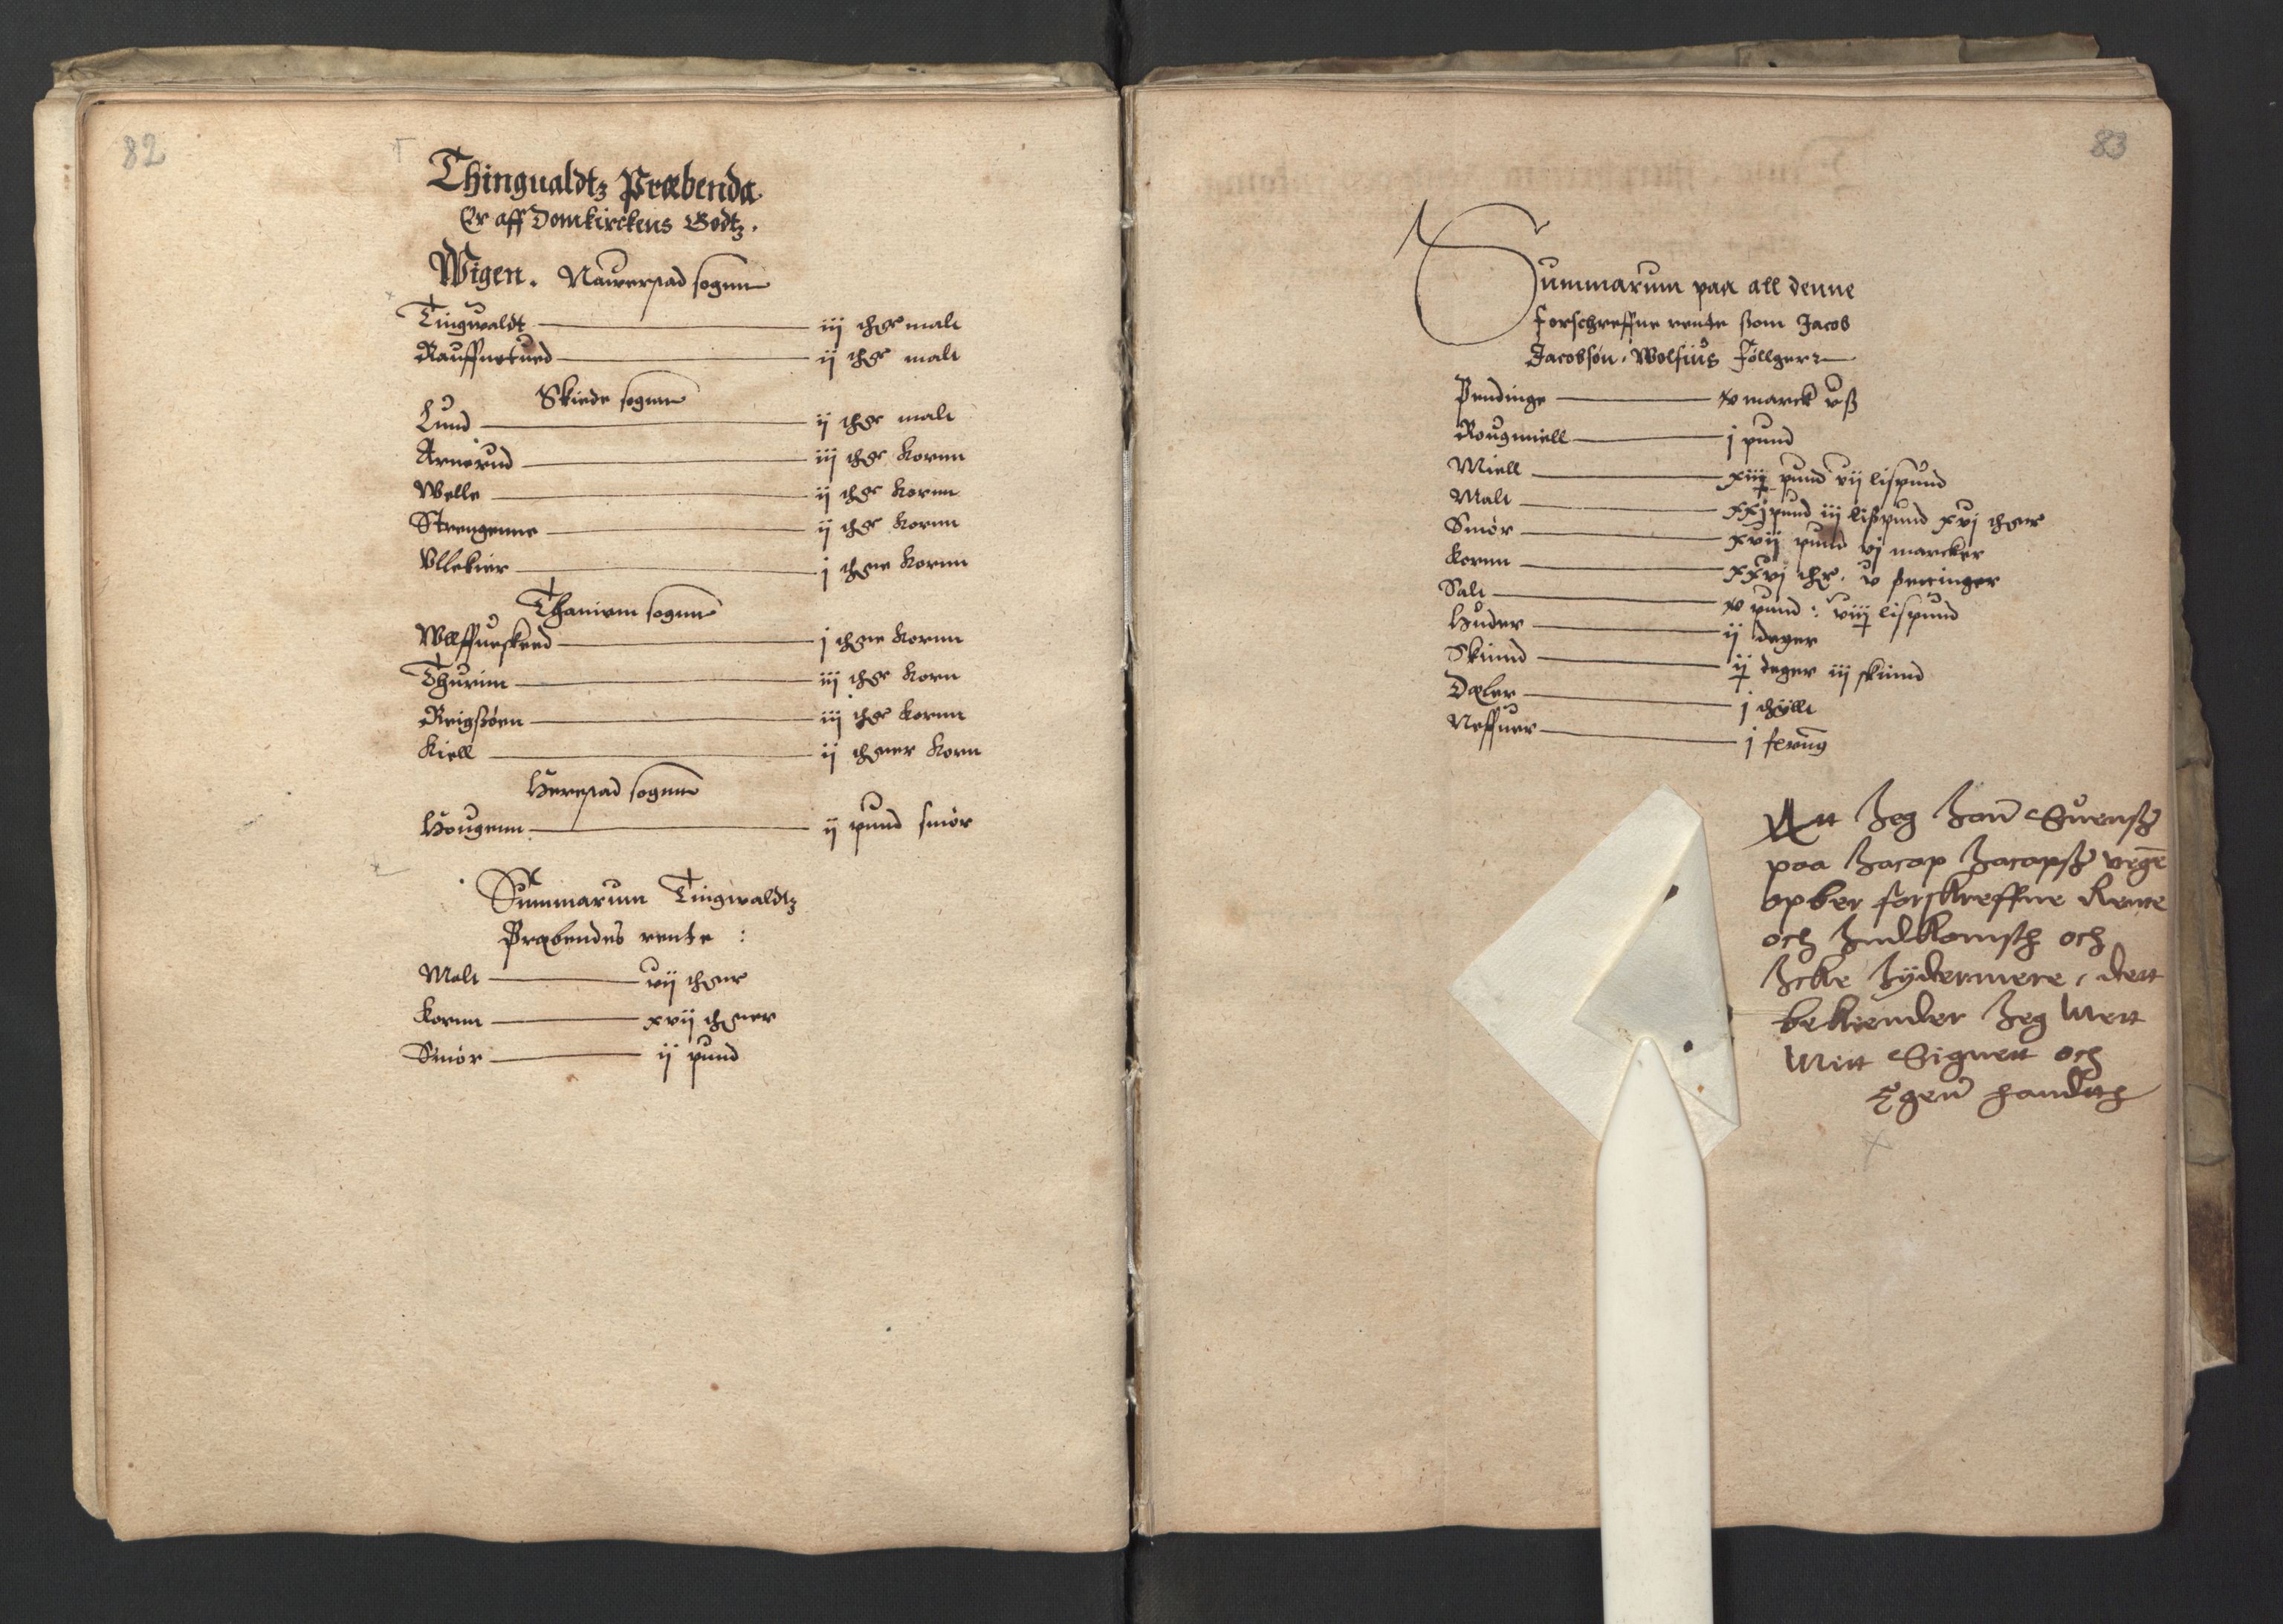 82
Thingualdtz Præbenda
Er aff Domkirckens Godtz.
Wigen. Nauerstad sognn
Tingwaldt iij thr malt
Rauffnetued ij thr malt
Skiede sognn
Lund ij thr malt
Arnerud iij thr Kornn
Welle ij thr Kornn
Strengenne ij thr Kornn
Ullekier j thne Kornn
Thaniom sognn
Wlffueskeed j thne Kornn
Thurim iij thr Korn
Reigsøen iij thr Kornn
Kiell ij thner Korn
Herestad sognn
Hougenn ij pund smør
Summarum Tingwaldtz
Præbendes rente :
Malt vij thner
Kornn xvij thner
Smør ij pund
83
Summarum paa all denne
forschreffne rente ssom Jacob
Jacobsøn Wolfius føllger
Pendinge xv marck v ß
Rougmiell j pund
Miell xiiij pund vij lispund
Malt xxj pund iij lißpund xvj thner
Smør xvij pund vj marcker
Kornn xxvj thr. v settinger
Salt xv pund : viij lispund
Huder ij deger
Skiind ij deger iij skiind
Dæler j thyllt
Neffuer j ferung
Att Jeg Jonn Suenß
paa Jacop Jacopß vegne
opber forskreffne Rente
och Indkomsth och
Icke Ydermere, dett
bekiender Jeg Mett
Mitt Signett och
Egenn handth